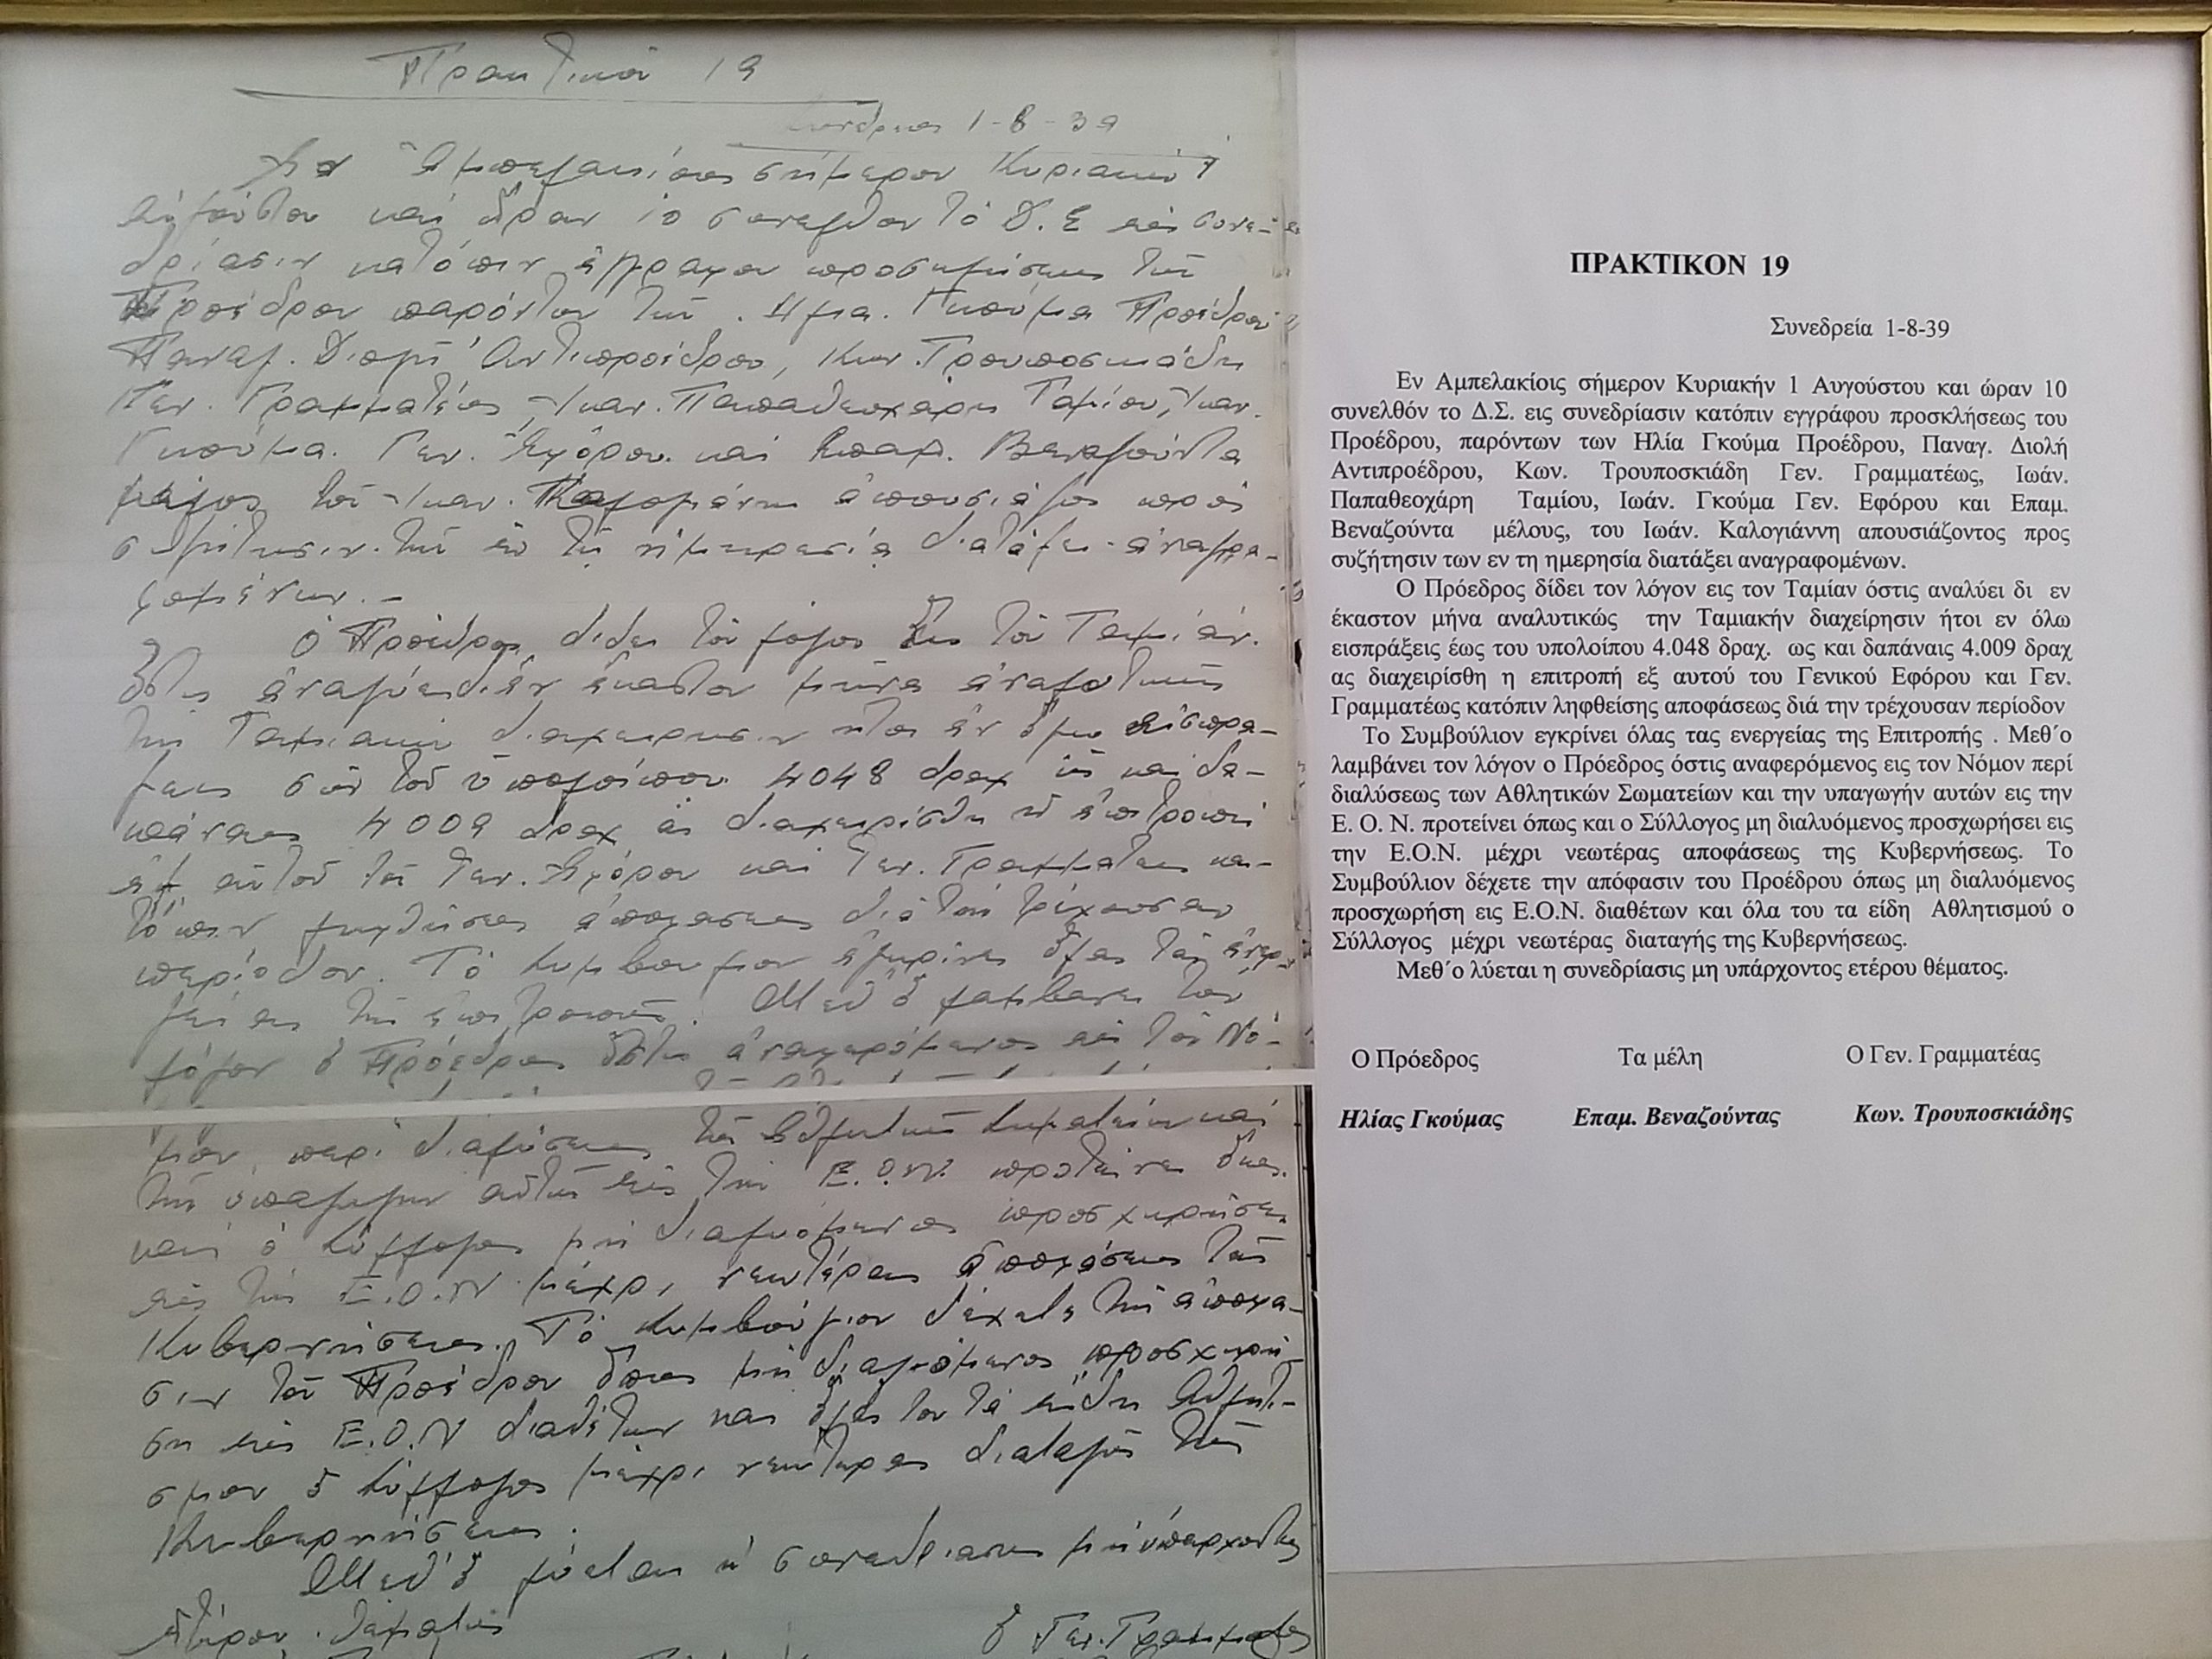 Πρακτικόν 19
Συνεδρεια 1-8-39
Εν Ἀμπελακίοις σήμερον Κυριακήν 1
Αὐγούστου καί ὥραν 10 συνελθον τό Δ.Σ εἰς συνε-
δρίασιν κατόπιν ἐγγραφου προσκλήσεως τοῦ
Προέδρου παρόντων τῶν Ηλια. Γκούμα Προέδρου
Παναγ. Διολῆ Ἀντιπροέδρου, Κων. Τρουποσκιάδη
Γεν. Γραμματέως Ιωαν. Παπαθεοχάρη Ταμίου, Ιωαν.
Γκούμα. Γεν. Ἐφόρου. καί Επαμ. Βεναζούντα
μέλους τοῦ Ιωαν. Καλογιάννη ἀπουσιάζοντος πρός
συζήτησιν. τῶν ἐν τῇ ἡμερησία διατάξει ἀναγρα-
φομένων. —
Ὁ Πρόεδρος διδει τόν λόγον εἰς τόν Ταμίαν.
ὅστις ἀναλύει δι ἐν ἑκαστον μῆνα ἀναλυτικῶς
τήν Ταμιακήν διαχειρησιν ητοι ἐν ὅλω εἰσπρα-
ξεις σύν τοῦ ὑπολοίπου 4048 δραχ ὡς καί δα-
πάναις 4009 δραχ ἅς διαχειρίσθη ἡ ἐπιτροπή
ἐξ αὐτοῦ τοῦ Γεν. Ἐφόρου καί Γεν. Γραμματεως κα-
τόπιν ληφθείσης ἀποφασεως διά τήν τρέχουσαν
περίοδον. Τό Συμβουλιον ἐγκρίνει ὅλας τάς ἐνερ-
γείας τῆς ἐπιτροπῆς. Μεθ' ὅ λαμβανει τόν
λόγον ὁ Πρόεδρος ὅστις ἀναφερόμενος εἰς τόν Νό-
μον περί διαλύσεως τῶν Ἀθλητικῶν Σωματείων καί
τήν υπαγωγην αὐτῶν εἰς τήν Ε.Ο.Ν. προτείνει ὅπως
καί ὁ Σύλλογος μή διαλυόμενος προσχωρήσει
εἰς τήν Ε.Ο.Ν μέχρι νεωτέρας ἀποφάσεως τῆς
Κυβερνήσεως. Τό Συμβούλιον δέχετε τήν ἀποφα-
σιν τοῦ Προέδρου ὅπως μή διαλυόμενος προσχωρή-
ση εἰς Ε.Ο.Ν διαθέτων και ὅλα του τά εἴδη Ἀθλητι-
σμου ὁ Σύλλογος μέχρι νεωτερας διαταγῆς τῆς
Κυβερνήσεως.
Μεθ' ὅ λύεται ἡ συνεδρίασις μή ὑπαρχοντος
ἑτέρου θέματος
Ὁ Γεν. Γραμματεας
ΠΡΑΚΤΙΚΟΝ 19
Συνεδρεία 1-8-39
Εν Αμπελακίοις σήμερον Κυριακήν 1 Αυγούστου και ώραν 10
συνελθόν το Δ.Σ. εις συνεδρίασιν κατόπιν εγγράφου προσκλήσεως του
Προέδρου, παρόντων των Ηλία Γκούμα Προέδρου, Παναγ. Διολή
Αντιπροέδρου, Κων. Τρουποσκιάδη Γεν. Γραμματέως, Ιωάν.
Παπαθεοχάρη Ταμίου, Ιωάν. Γκούμα Γεν. Εφόρου και Επαμ.
Βεναζούντα μέλους, του Ιωάν. Καλογιάννη απουσιάζοντος προς
συζήτησιν των εν τη ημερησία διατάξει αναγραφομένων.
Ο Πρόεδρος δίδει τον λόγον εις τον Ταμίαν όστις αναλύει δι εν
έκαστον μήνα αναλυτικώς την Ταμιακήν διαχείρησιν ήτοι εν όλω
εισπράξεις έως του υπολοίπου 4.048 δραχ. ως και δαπάναις 4.009 δραχ
ας διαχειρίσθη η επιτροπή εξ αυτού του Γενικού Εφόρου και Γεν.
Γραμματέως κατόπιν ληφθείσης αποφάσεως διά την τρέχουσαν περίοδον
Το Συμβούλιον εγκρίνει όλας τας ενεργείας της Επιτροπής . Μεθ΄ο
λαμβάνει τον λόγον ο Πρόεδρος όστις αναφερόμενος εις τον Νόμον περί
διαλύσεως των Αθλητικών Σωματείων και την υπαγωγήν αυτών εις την
Ε. Ο. Ν. προτείνει όπως και ο Σύλλογος μη διαλυόμενος προσχωρήσει εις
την Ε.Ο.Ν. μέχρι νεωτέρας αποφάσεως της Κυβερνήσεως. Το
Συμβούλιον δέχετε την απόφασιν του Προέδρου όπως μη διαλυόμενος
προσχωρήση εις Ε.Ο.Ν. διαθέτων και όλα του τα είδη Αθλητισμού ο
Σύλλογος μέχρι νεωτέρας διαταγής της Κυβερνήσεως.
Μεθ΄ο λύεται η συνεδρίασις μη υπάρχοντος ετέρου θέματος.
Ο Πρόεδρος Τα μέλη Ο Γεν. Γραμματέας
Ηλίας Γκούμας Επαμ. Βεναζούντας Κων. Τρουποσκιάδης